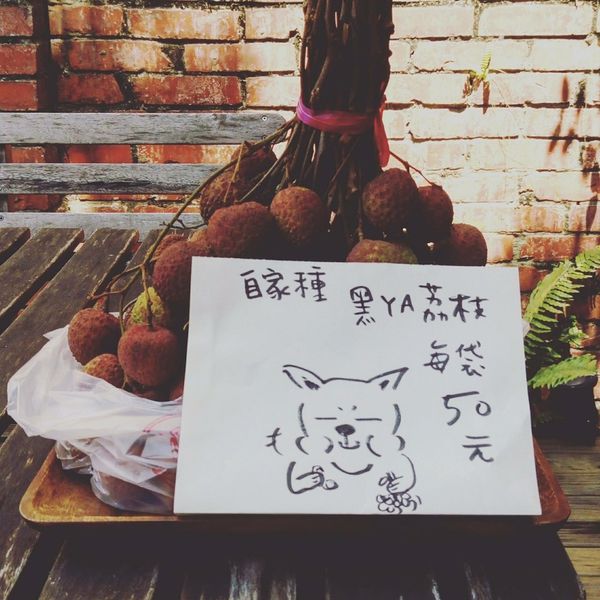 自家種
黑YA荔枝
每袋
50
元